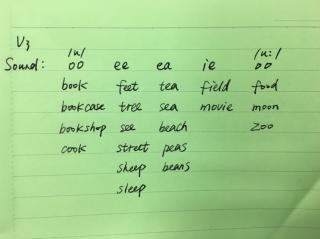 V3
/u/ /u:/
Sound: oo ee ea ie oo
book feet tea field food
bookcase tree sea movie moon
bookshop see beach zoo
cook street peas
sheep beans
sleep